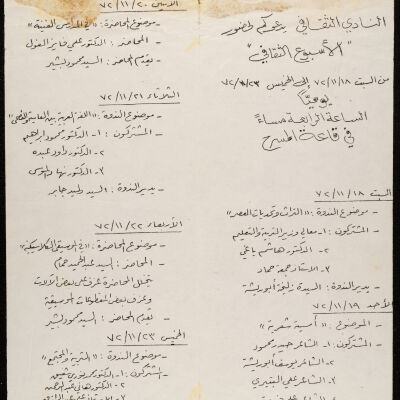 النادي الثقافي يدعوكم لحضور
"الأسبوع الثقافي"
من السبت ٧٢/١١/١٨ إلى الخميس ٧٢/١١/٢٣
يوميًا
الساعة الرابعة مساءً
في قاعة المسرح
السبت ٧٢/١١/١٨
- موضوع الندوة: "التراث وتحديات العصر"
- المشتركون: ١- معالي وزير التربية والتعليم
٢- الدكتور هاشم ياغي
٣- الاستاذ جمعة حماد
- يدير الندوة: السيدة زليخة أبوريشة
الأحد ٧٢/١١/١٩
- الموضوع: "أمسية شعرية"
- المشتركون: ١- الشاعر حيدر محمود
٢- الشاعر يوسف أبوريشة
٣- الشاعر علي البتيري
الاثنين ٧٢/١١/٢٠
- موضوع المحاضرة: "في المدارس الفنية"
- المحاضر: الدكتور علي فايز الغول
- يقدم المحاضر: السيد محمود لشير
الثلاثاء ٧٢/١١/٢١
- موضوع الندوة: "اللغة العربية بين العامية والفصحى"
- المشتركون: ١- الدكتور محمود ابراهيم
٢- الدكتور داود عبده
٣- الدكتور نهاد الموسى
- يدير الندوة: السيد وليد جابر
الأربعاء ٧٢/١١/٢٢
- موضوع المحاضرة: "في الموسيقى الكلاسيكية"
- المحاضر: السيد عبدالحميد حمام
يتخلل المحاضرة عزف على بعض الآلات
وعزف بعض المقطوعات الموسيقية
- يقدم المحاضر: السيد محمود لشير
الخميس ٧٢/١١/٢٣
- موضوع الندوة: "التربية والمجتمع"
- المشتركون: ١- الدكتور محمد نوري شفيق
٢- الدكتور هاني عبدالرحمن